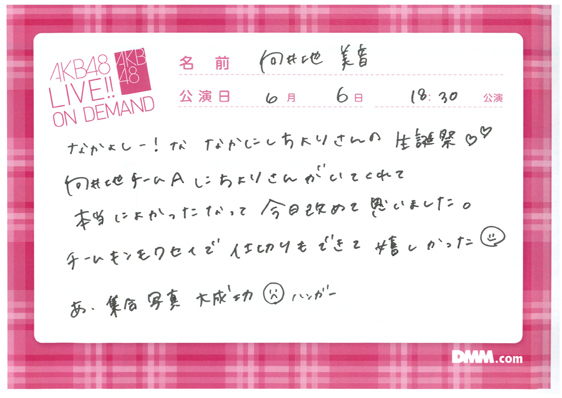 AKB48
LIVE!!
ON DEMAND
AKB
48
名 前 向井地 美音
公演日 6月 6日 18:30 公演
なかよしー!な なかにしちよりさんの 生誕祭♡♡
向井地チームAにちよりさんがいてくれて
本当によかったなって 今日改めて思いました。
チームキンモクセイで 仕切りもできて 嬉しかった
あ、集合写真 大成功 ハンガー
DMM.com